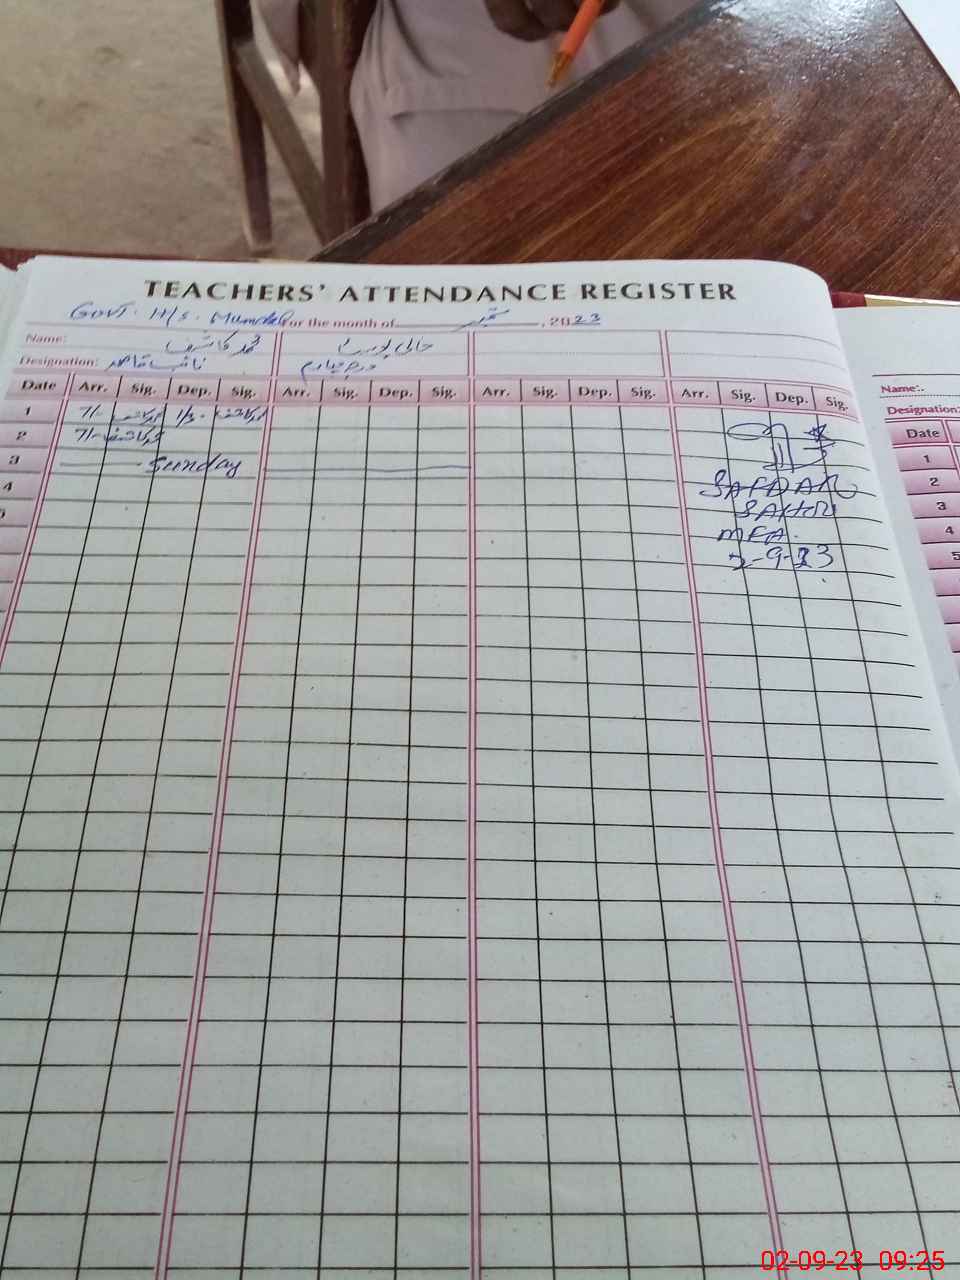 TEACHERS' ATTENDANCE REGISTER
GOVT. H/S. For the month of ستمبر, 2023
Name: محمد کاشف خالی پوسٹ
Designation: نائب قاصد درجہ چہارم
Date Arr. Sig. Dep. Sig. Arr. Sig. Dep. Sig. Arr. Sig. Dep. Sig. Arr. Sig. Dep. Sig.
1 7/- محمد کاشف 1/5. محمد کاشف
2 7/- محمد کاشف
3 Sunday
4
5
SAFDAR
MEA.
2-9-23
Name:.
Designation:
Date
1
2
3
4
5
02-09-23 09:25